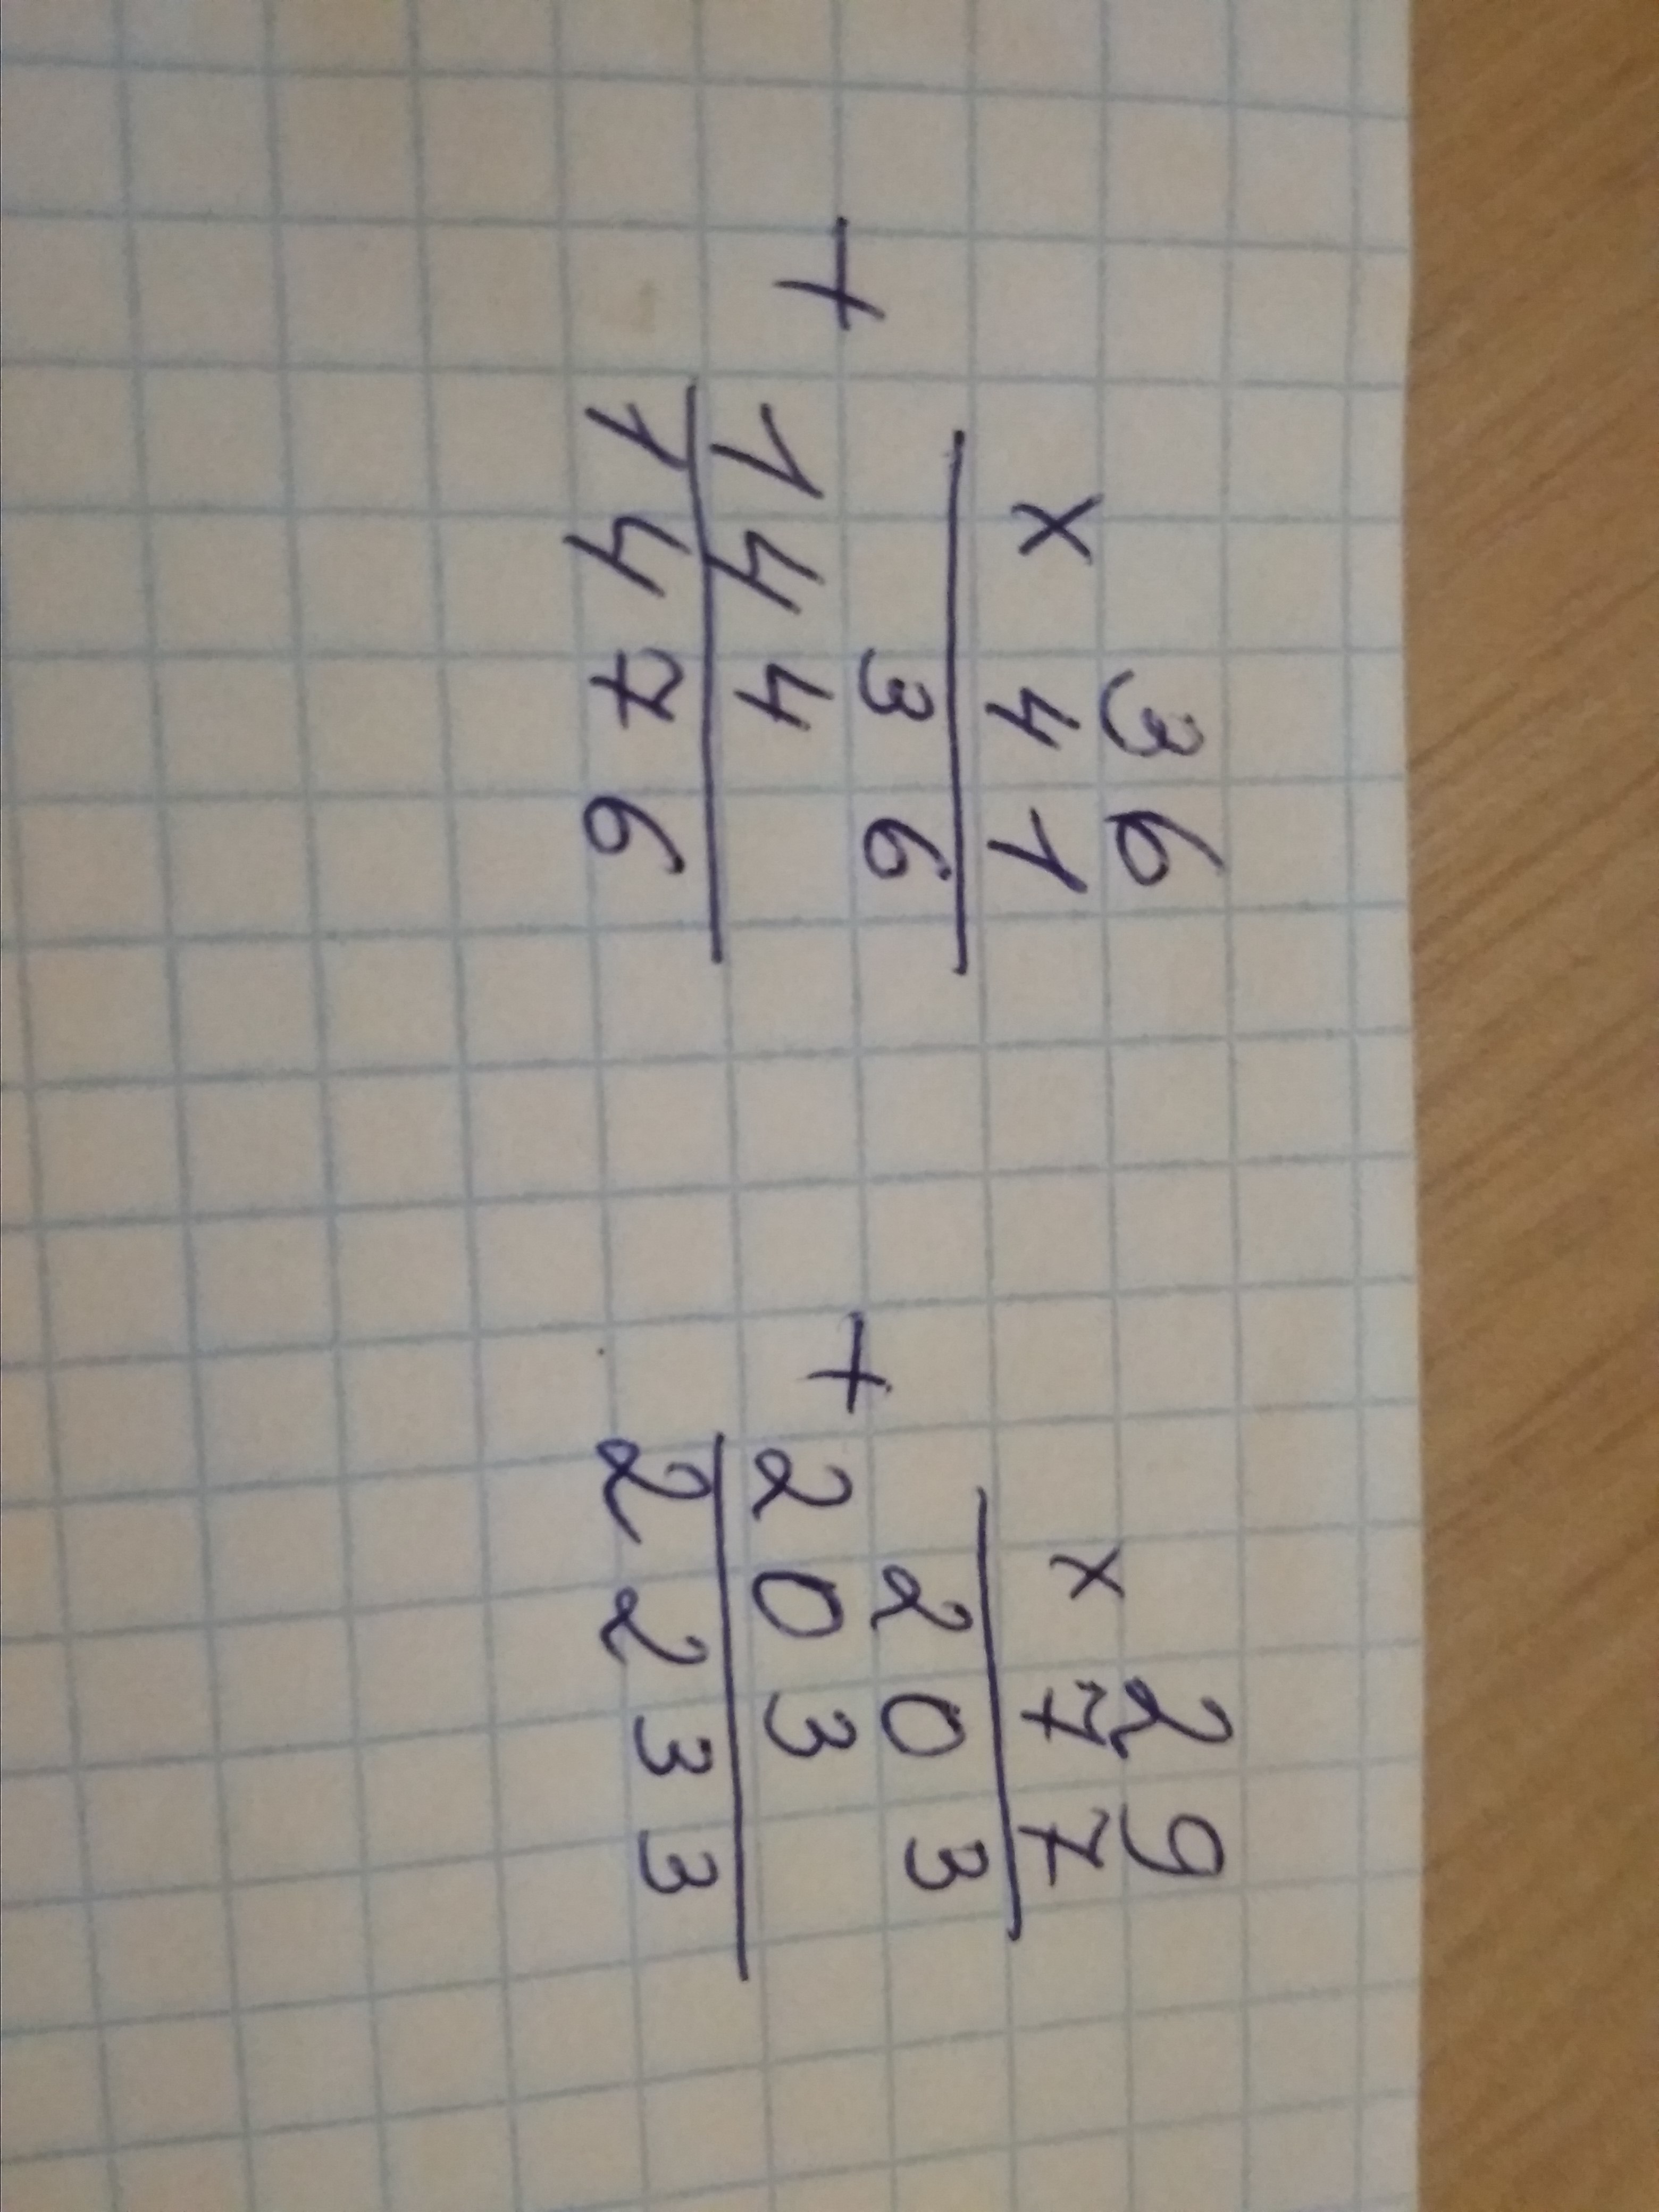 36
× 41
36
+ 144
1476
29
× 77
203
+ 203
2233